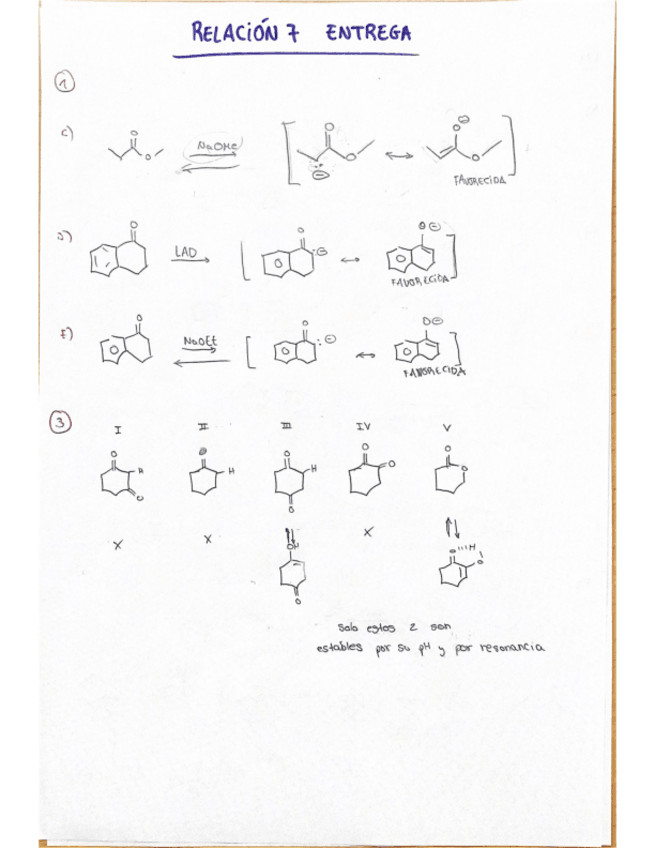 RELACIÓN 7 ENTREGA
1
c)
NaOMe
FAVORECIDA
LAD
FAVORECIDA
NaOEt
FAVORECIDA
3
I II III IV V
X X X
Solo estos 2 son
estables por su pH y por resonancia